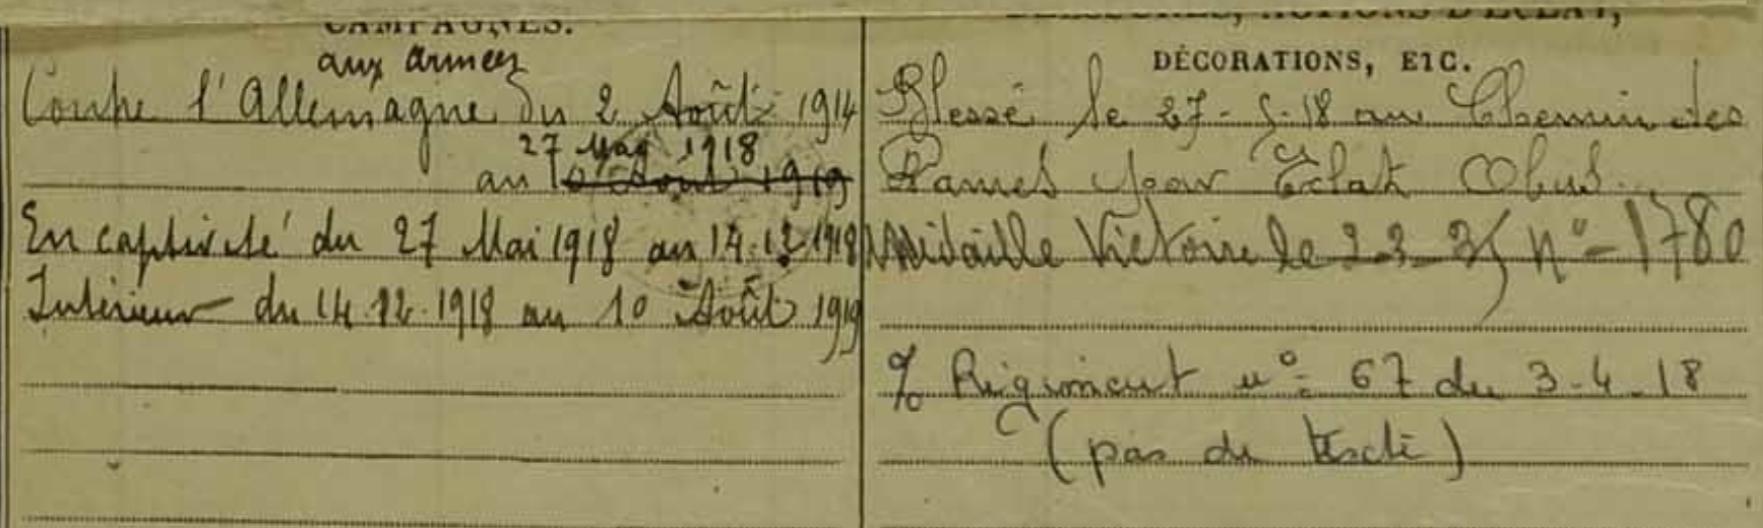 CAMPAGNES.
aux armées
Contre l'Allemagne du 2 Août 1914
27 Mai 1918
au 10 Août 1919
En captivité du 27 Mai 1918 au 14.12.1918
Intérieur du 14.12.1918 au 10 Août 1919
BLESSURES, ACTIONS D'ÉCLAT,
DÉCORATIONS, ETC.
Blessé le 27-5-18 au Chemin des
Dames par Eclat Obus.
Médaille Victoire le 2-3-35 n°-1780
% Régiment n°= 67 du 3-4-18
(pas de texte)